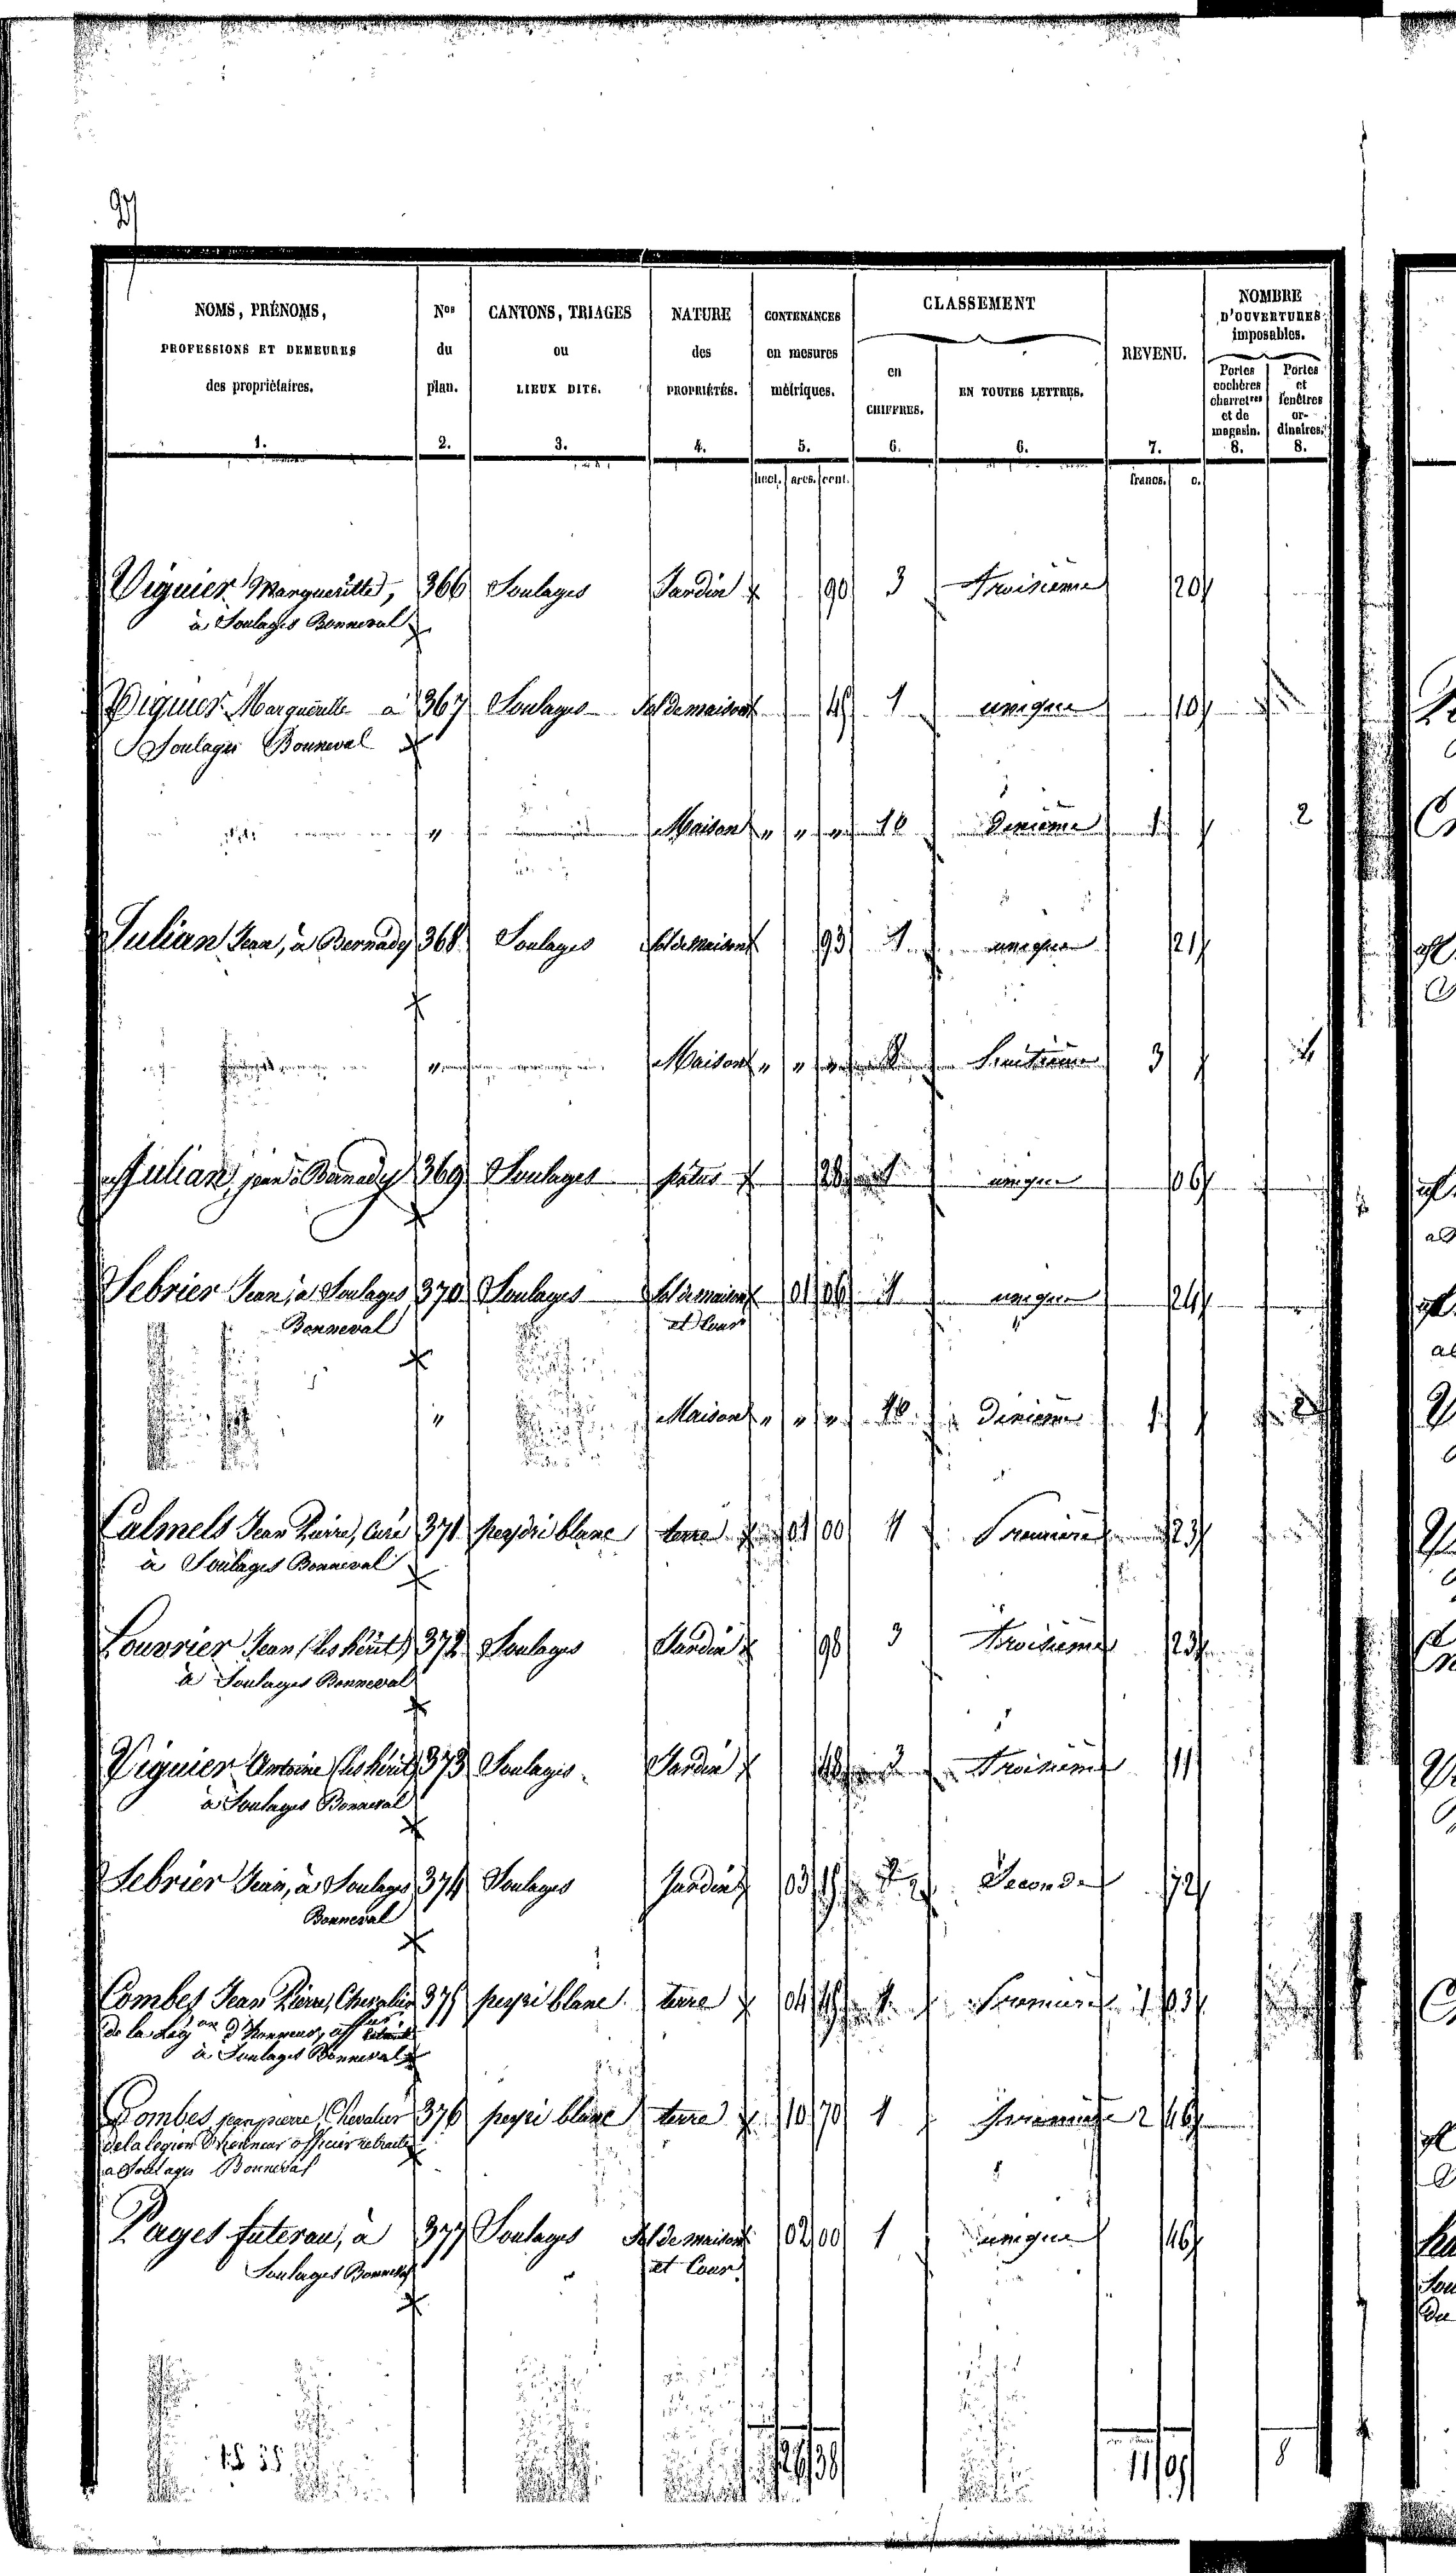 NOMS, PRÉNOMS, PROFESSIONS ET DEMEURES des propriétaires. 1.
Nos du plan. 2.
CANTONS, TRIAGES ou LIEUX DITS. 3.
NATURE des PROPRIÉTÉS. 4.
CONTENANCES en mesures métriques. 5.
CLASSEMENT
en CHIFFRES. 6.
EN TOUTES LETTRES. 6.
REVENU. 7.
NOMBRE D'OUVERTURES imposables.
Portes cochères charretres et de magasin. 8.
Portes et fenêtres or-dinaires. 8.
hect. ares. cent. francs. c.
Viguier Margueritte, 366 Soulages Jardin 90 3 Troisieme 20
à Soulages Bonneval
Viguier Marguerite a 367 Soulages Sol de maison 45 1 unique 10
Soulages Bonneval
" Maison " " " 10 Dixieme 1 2
Julian Jean, à Bernady 368 Soulages Sol de maison 93 1 unique 21
" Maison " " " 8 huitieme 3 4
Julian, jean à Bernady 369 Soulages patus 28 1 unique 06
Sebrier Jean, à Soulages 370 Soulages Sol de maison 01 06 1 unique 24
Bonneval et Cour
" Maison " " " 10 Dixieme 1 2
Calmels Jean Pierre, Curé 371 peyri blanc terre 01 00 1 Premiere 23
à Soulages Bonneval
Louvrier Jean (les hérit) 372 Soulages Jardin 98 3 Troisieme 23
à Soulages Bonneval
Viguier Antoine (les hérit) 373 Soulages Jardin 48 3 Troisieme 11
à Soulages Bonneval
Sebrier Jean, à Soulages 374 Soulages Jardin 03 15 2 Seconde 72
Bonneval
Combes Jean Pierre, Chevalier 375 peyri blanc terre 04 45 1 Premiere 1 03
de la Légon d'honneur, off
à Soulages Bonneval
Combes jean pierre, Chevalier 376 peyri blanc terre 10 70 1 premiere 2 46
de la legion d'honneur officier retraité
a Soulages Bonneval
Pages à 377 Soulages Sol de maison 02 00 1 unique 46
Soulages Bonneval et Cour
26 38 11 05 8